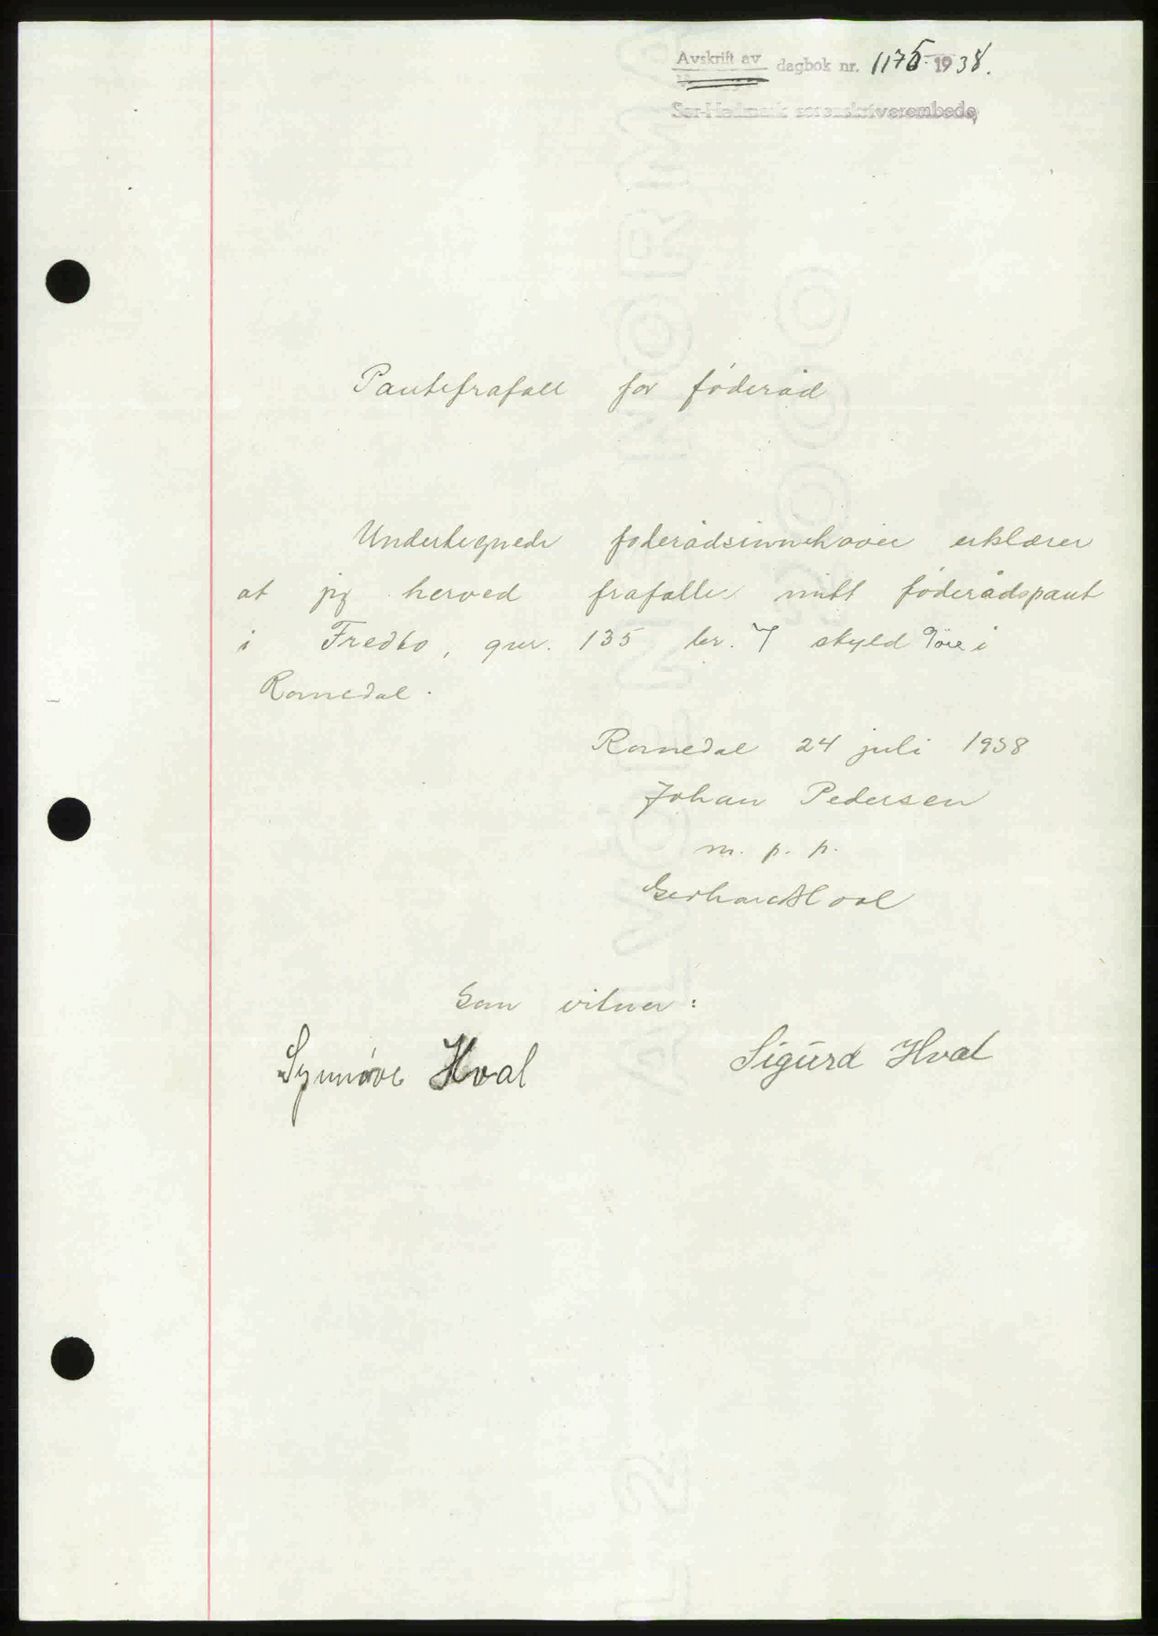 Avskrift av dagbok nr. 1175 1938.
Sør-Hedmark sorenskriverembede
Pantefrafall for føderåd
Undertegnede føderådsinnehaver erklærer
at jeg herved frafaller mitt føderådspant
i Fredbo, gnr. 135 br. 7 skyld 9 øre i
Romedal.
Romedal 24 juli 1938
Johan Pedersen
m. p. p.
Gerhard Hval
Som vitner:
Synnøve Hval Sigurd Hval
ALVØEN NORMAL 2
2000